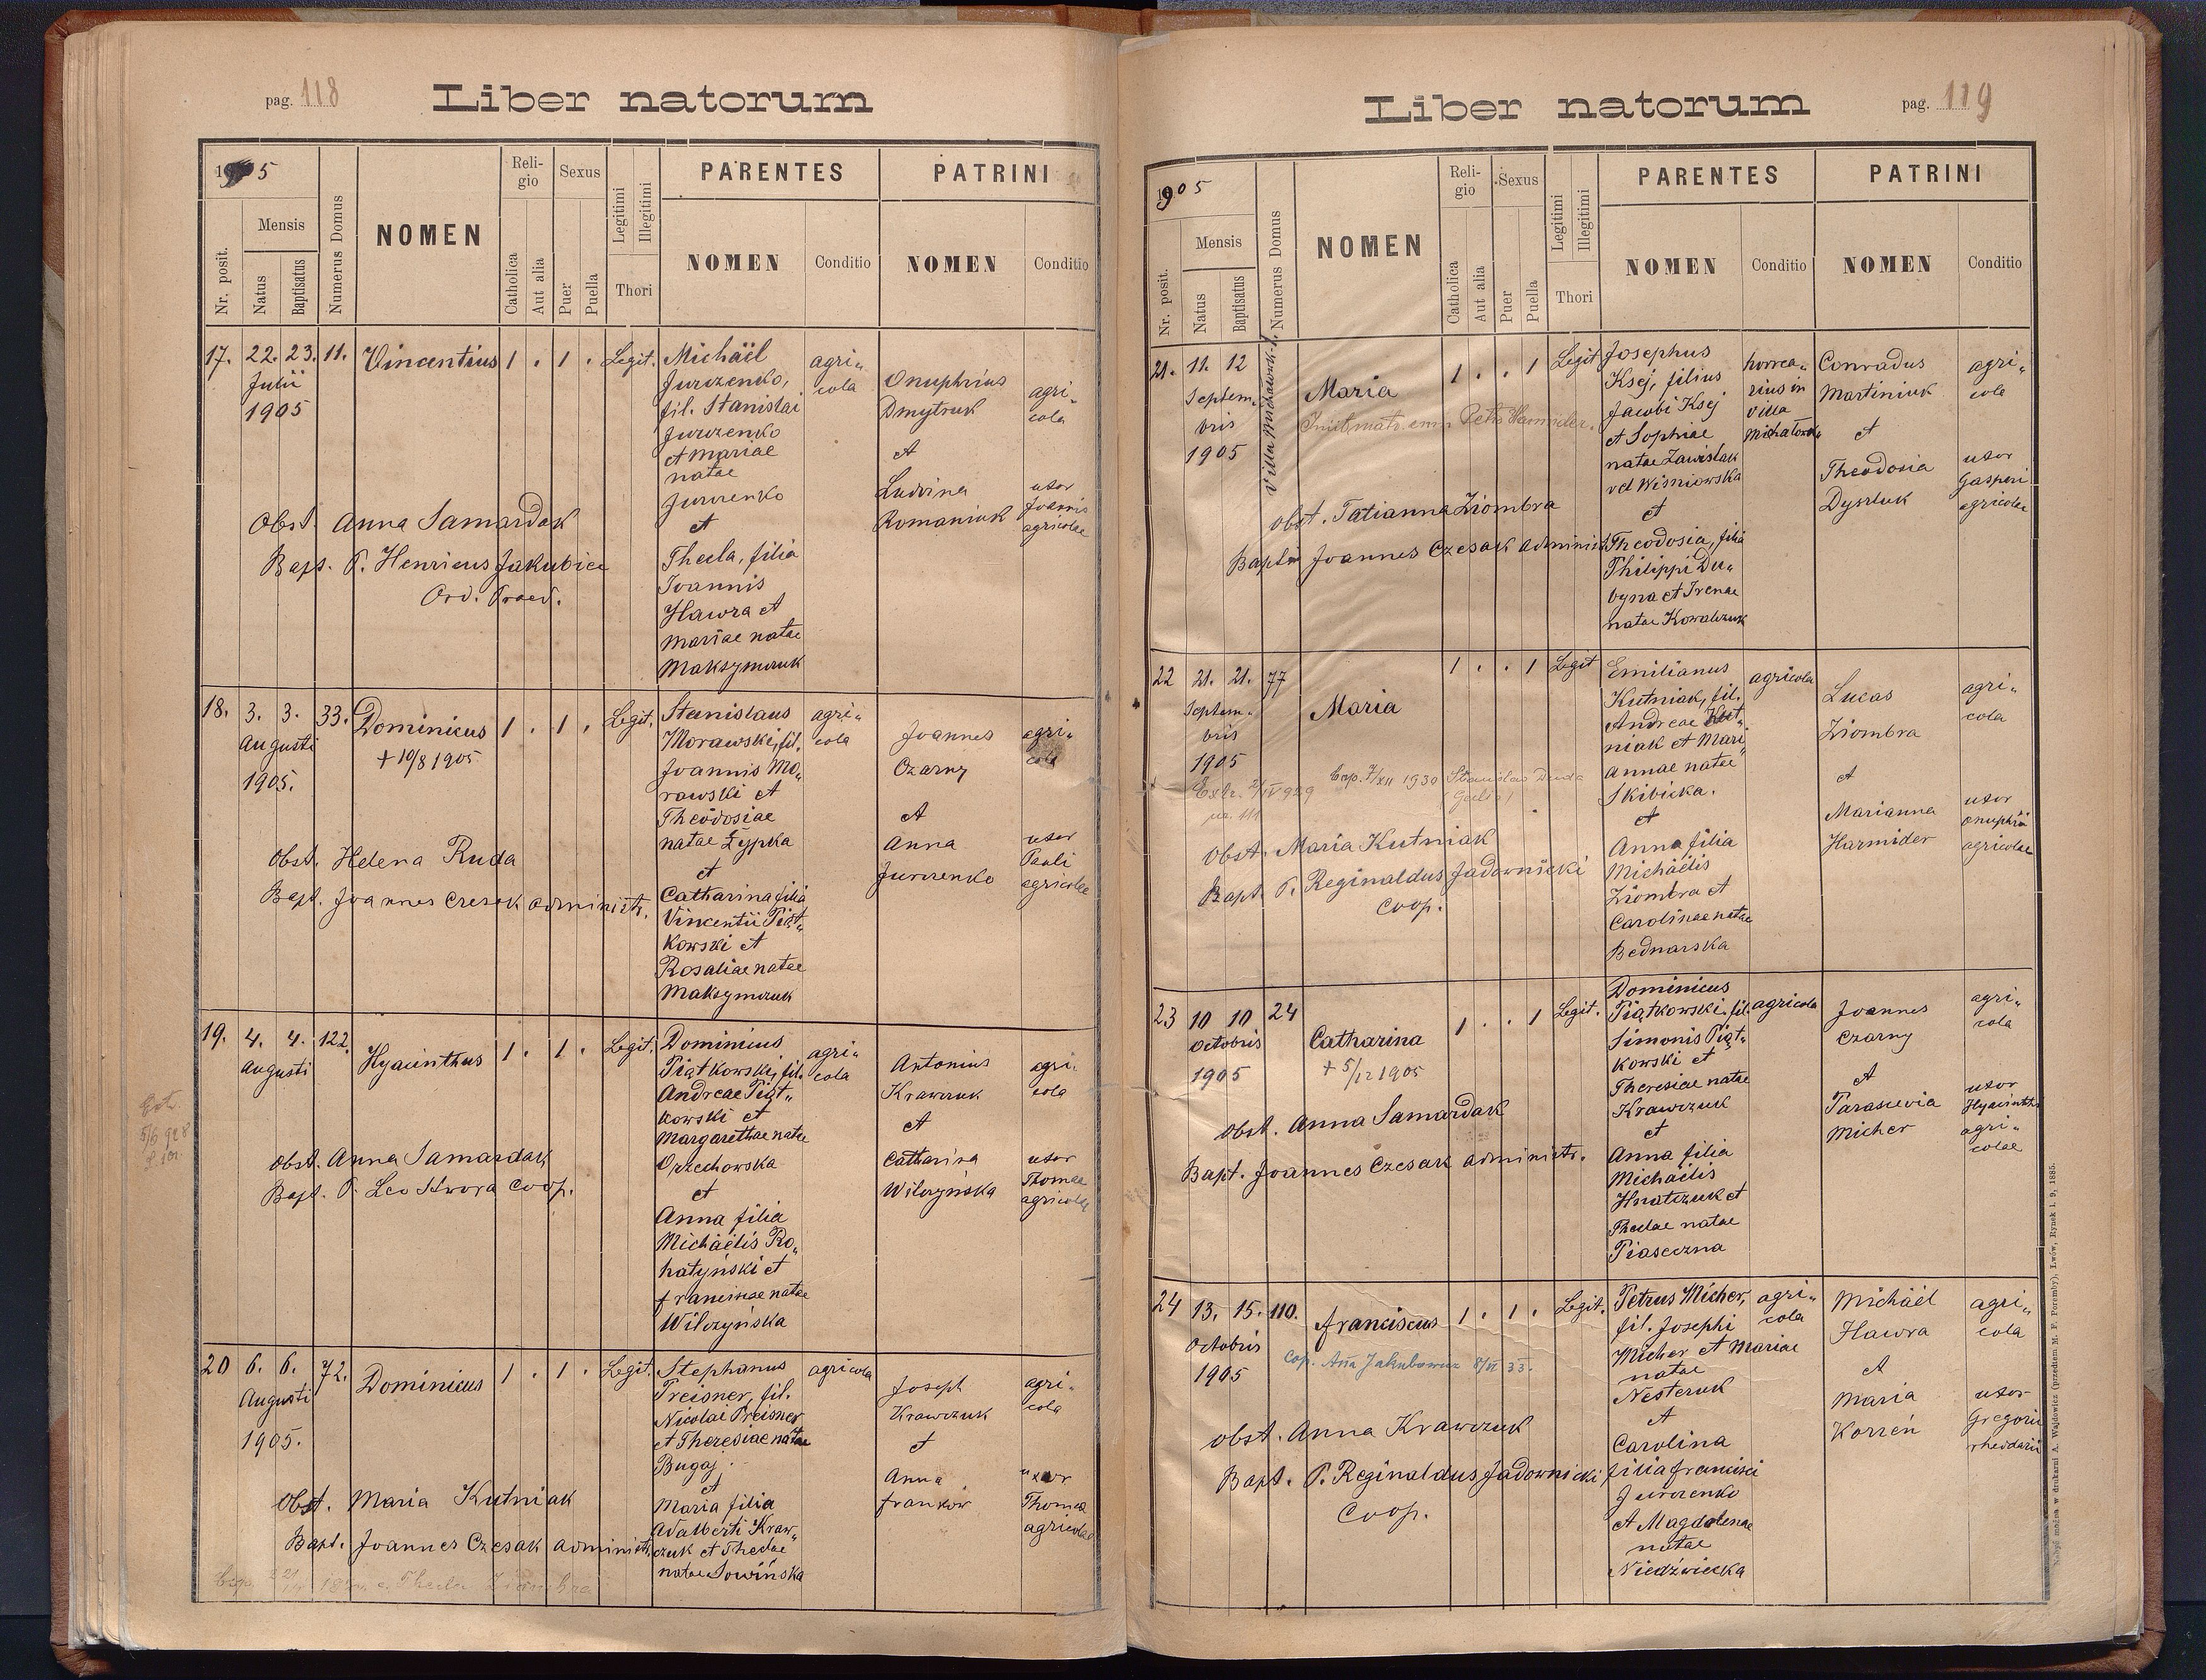 pag. 118
Liber natorum
1905
Nr. posit.
Mensis
Natus
Baptisatus
Numerus Domus
NOMEN
Reli-
gio
Catholica
Aut alia
Sexus
Puer
Puella
Legitimi
Illegitimi
Thori
PARENTES
NOMEN
Conditio
PATRINI
NOMEN
Conditio
17. 22. 23. 11. Vincentius 1 . 1 . Legit.
Julii
1905
Michäel
Jurczenko,
fil. Stanislai
Jurczenko
et Mariae
natae
Jurczenko
et
Thecla, filia
Joannis
Hawra et
Mariae natae
Maksymczuk
agri„
cola
Onuphrius
Dmytruk
et
Ludvina
Romaniuk
agri„
cola
uxor
Joannis
agricolae
Obst. Anna Samardak
Bapt. P. Henricus Jakubiec
Ord. Praed.
18. 3. 3. 33. Dominicus 1 . 1 . Legit.
Augusti
1905.
+ 10/8 1905
Stanislaus
Morawski, fil.
Joannis Mo„
rawski et
Theodosiae
natae Zypka
et
Catharina filia
Vincentii Piąt„
kowski et
Rosaliae natae
Maksymczuk
agri„
cola
Joannes
Czarny
et
Anna
Jurczenko
agri„
cola
uxor
Pauli
agricolae
Obst. Helena Ruda
Bapt. Joannes Czesak administr.
19. 4. 4. 122. Hyacinthus 1 . 1 . Legit.
Augusti
Dominicus
Piątkowski, fil.
Andreae Piąt„
kowski et
Margarethae natae
Orzechowska
et
Anna filia
Michäelis Ro„
hatyński et
Francinae natae
Wilczyńska
agri„
cola
Antonius
Krawczuk
et
Catharina
Wilczynska
agri„
cola
uxor
Thomae
agricolae
5/6 928
Obst. Anna Samardak
Bapt. P. Leo Skwora Coop.
20 6. 6. 72. Dominicus 1 . 1 . Legit.
Augusti
1905.
Stephanus
Preisner, fil.
Nicolai Preisner
et Theresiae natae
Bugaj.
et
Maria filia
Adalberti Kraw„
czuk et Theclae
natae Sowińska
agricola
Joseph
Krawczuk
et
Anna
Franków
agri„
cola
uxor
Thomae
agricolae
Obst. Maria Kutniak
Bapt. Joannes Czesak administr.
Thecla Ziombra
pag. 119
Liber natorum
1905
Nr. posit.
Mensis
Natus
Baptisatus
Numerus Domus
NOMEN
Reli-
gio
Catholica
Aut alia
Sexus
Puer
Puella
Legitimi
Illegitimi
Thori
PARENTES
NOMEN
Conditio
PATRINI
NOMEN
Conditio
21. 11. 12 Maria 1 . . 1 Legit
Septem„
bris
1905
Iniit matr. cum Petro Harmider.
Josephus
Ksej, filius
Jacobi Ksej
et Sophiae
natae Zawislak
vel Wisniowska
et
Theodosia, filia
Philippi Du„
byna et Irenae
natae Kowalczuk
horrea„
rius in
Villa
Michałowka
Conradus
Martiniuk
et
Theodosia
Dysrluk
agri„
cola
uxor
Gasperi
agricolae
Obst. Tatianna Ziombra
Joannes Czesak administr.
22 21. 21. 77 Maria 1 . . 1 Legit
Septem„
bris
1905
Extr. 2/IV 929
Cop. 7/XII 1930 Stanislao Duda
Emilianus
Kutniak, fil.
Andreae Kut„
niak et Mari„
annae natae
Skibicka.
et
Anna filia
Michäelis
Ziombra et
Carolinae natae
Bednarska
agricola
Lucas
Ziombra
et
Marianna
Harmider
agri„
cola
uxor
Onuphrii
agricolae
Obst. Maria Kutniak
Bapt. P. Reginaldus Jadownicki
Coop.
23 10 10 24 Catharina 1 . . 1 Legit.
Octobris
1905
+ 5/12 1905
Dominicus
Piątkowski. fil.
Simonis Piąt„
kowski et
Theresiae natae
Krawczuk
et
Anna filia
Michäelis
Hnatczuk et
Theclae natae
Piaseczna
agricola
Joannes
Czarny
et
Parascevia
Micher
agri„
cola
uxor
Hyacinthi
agri„
colae
Obst. Anna Samardak
Bapt. Joannes Czesak administr.
24 13. 15. 110. Franciscus 1 . 1 . Legit.
Octobris
1905
Cop. Anna Jakubowicz 8/VI 33.
Petrus Micher,
fil. Josephi
Micher et Mariae
natae
Nesteruk
et
Carolina
filia Francisci
Jurczenko
et Magdalenae
natae
Niedźwiecka
agri„
cola
Michäel
Hawra
et
Maria
Korzeń
agri„
cola
uxor
Gregorii
rhedarii
Obst. Anna Krawczuk
Bapt. P. Reginaldus Jadownicki
Coop.
Nabyć można w drukarni A. Wajdowicz (przedtem M. F. Poremby), Lwów, Rynek l. 9, 1885.